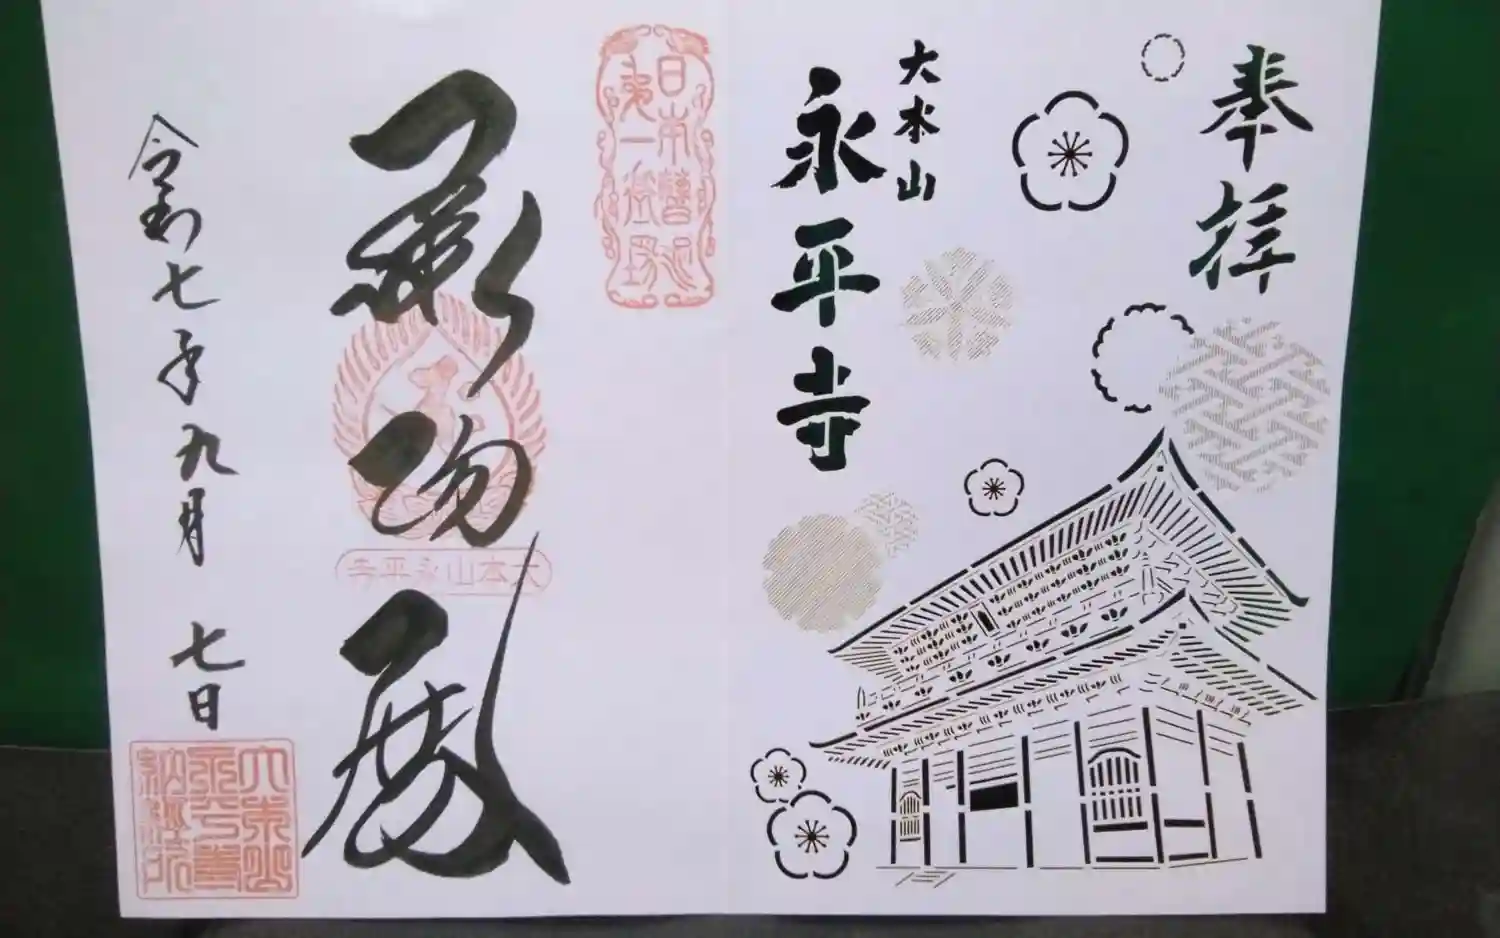 奉拝
大本山
永平寺
日本曹洞
第一道場
承陽殿
大本山永平寺
令和七年九月七日
大本山
永平寺
納経所